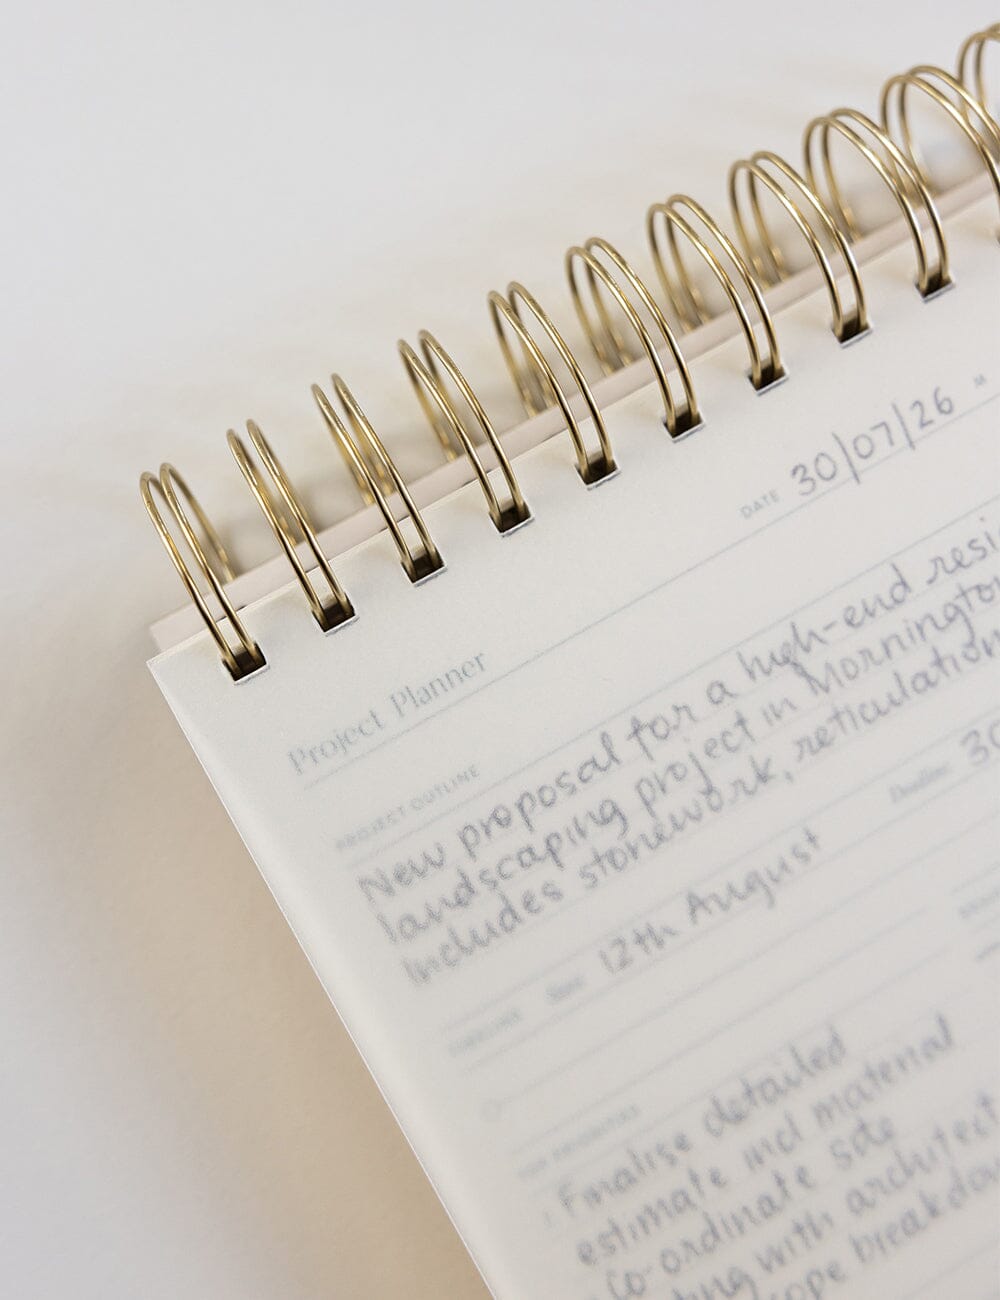 DATE 30/07/26 M
Project Planner
PROJECT OUTLINE
New proposal for a high-end resi
landscaping project in Mornington
includes stonework, reticulation
TIMELINE Start 12th August Deadline 30
TOP PRIORITIES
Finalise detailed
estimate and material
Co-ordinate site
ting with architect
ope breakdow